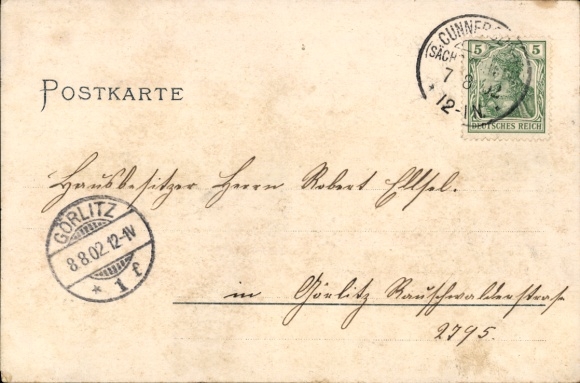 POSTKARTE
CUNNERSD
(SÄCHS.
7 8 02
* 12-1N. *
5 5
DEUTSCHES REICH
Hausbesitzer Herrn Robert Ellsel.
GÖRLITZ
8.8.02.12-1V
* 1 f
in Görlitz Rauschwalderstrasse
2795.